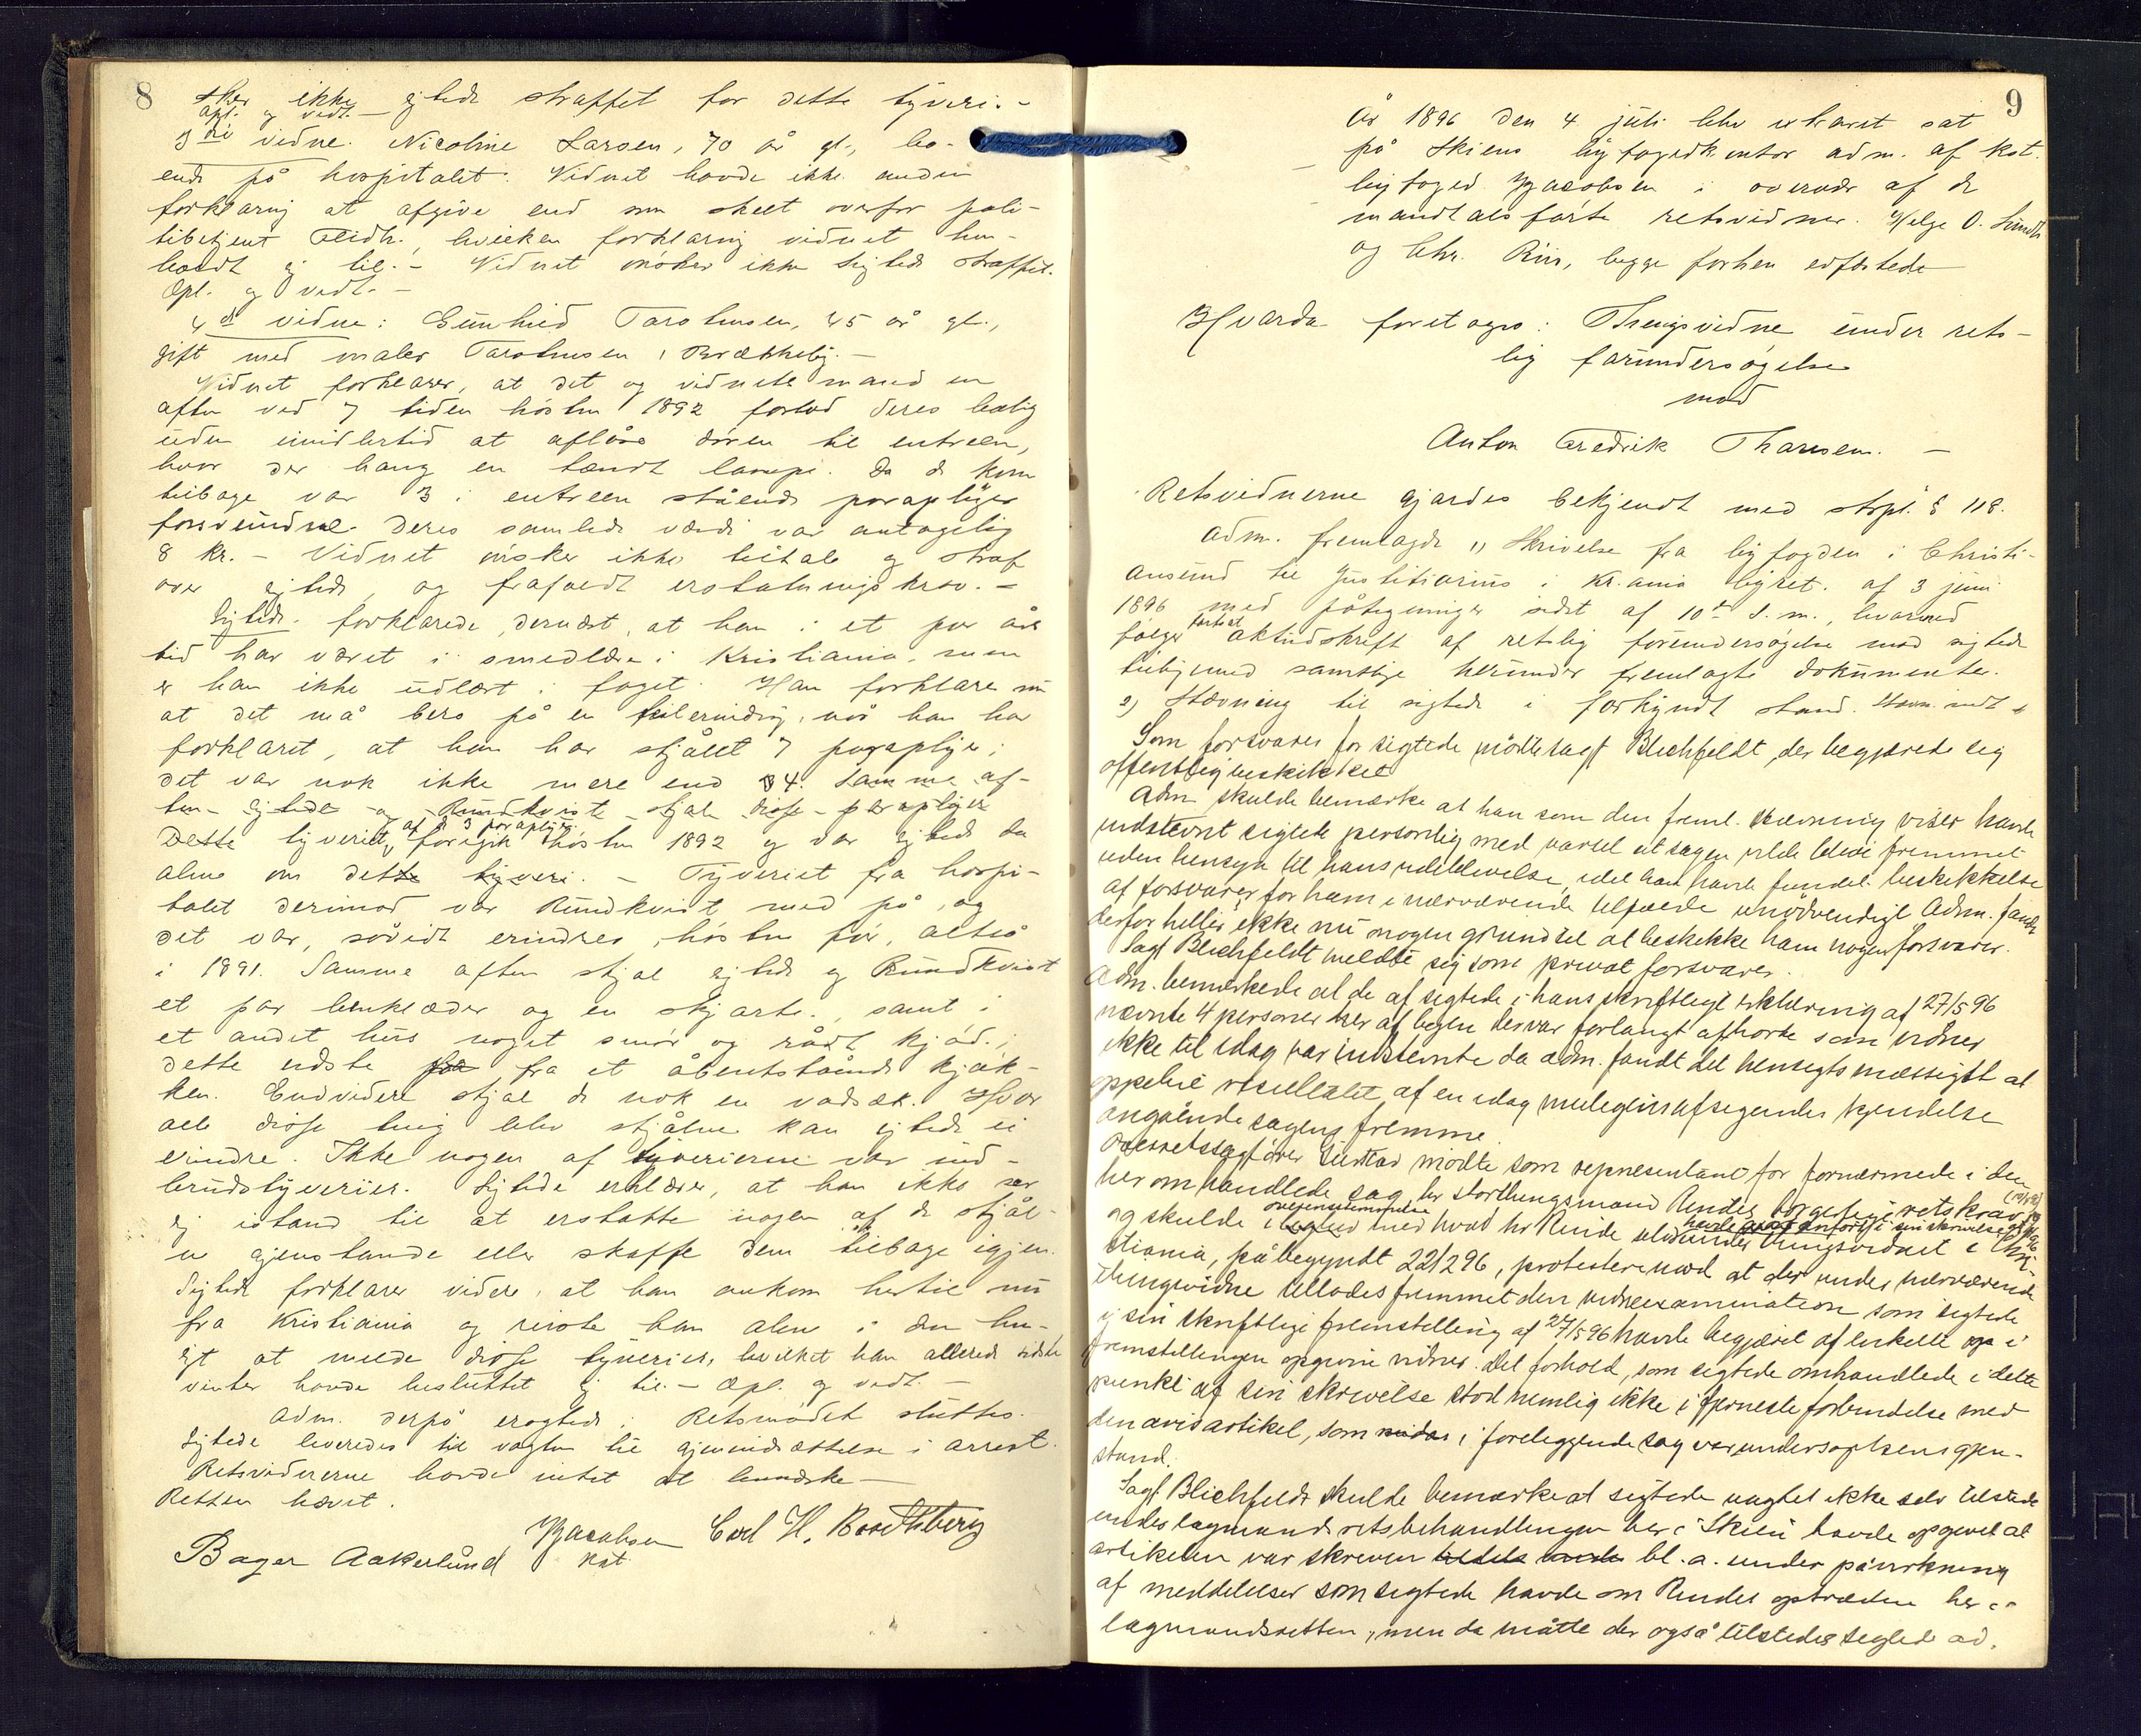 8
sker ikke sigtede straffet for dette tyveri. -
Opl. og vedt. -
3die vidne. Nicoline Larsen, 70 år gl., bo-
ende på hospitalet. Vidnet havde ikke anden
forklaring at afgive end som skeet overfor poli-
tibetjent Eidh., hvilken forklaring vidnet hen-
holdt sig til. - Vidnet ønsker ikke sigtede straffet.
Opl. og vedt. -
4de vidne: Gunhild Tarohnsen, 45 år gl.,
gift med maler Tarohnsen i Brækkeby. -
Vidnet forklarer, at det og vidnets mand en
aften ved 7 tiden høsten 1892 forlod deres bolig
uden imidlertid at aflåse døren til entreen,
hvor der hang en tændt lampe. Da de kom
tilbage var 3 i entreen stående paraplyer
forsvundne. Deres samlede værdi var antagelig
8 kr. - Vidnet ønsker ikke tiltale og straf
over sigtede, og frafaldt erstatningskrav. -
Sigtede forklarede dernæst, at han i et par års
tid har været i smedlære i Kristiania, men
er han ikke udlært i faget. Han forklarer nu
at det må bero på en feilerindring, når han har
forklaret, at han har stjålet 7 paraplyer;
det var nok ikke mere end 34. Samme af-
ten sigtede og Rundkvist stjal disse paraplyer
Dette tyveriet, af de 3 paraplyer, foregik høsten 1892 og var sigtede da
alene om dette tyveri. - Tyveriet fra hospi-
talet derimod var Rundkvist med på, og
det var, såvidt erindres, høsten før, altså
i 1891. Samme aften stjal sigtede og Rundkvist
et par benklæder og en skjorte, samt i
et andet hus noget smør og rådt kjød;
dette sidste fra fra et åbentstående kjøk-
ken. Endvidere stjal de nok en vadsæk. Hvor
alle disse ting blev stjålne kan sigtede ei
erindre. Ikke nogen af tyverierne var ind-
brudstyverier. Sigtede erklærer, at han ikke ser
sig istand til at erstatte nogen af de stjål-
ne gjenstande eller skaffe dem tilbage igjen.
Sigtede forklarer videre, at han ankom hertil nu
fra Kristiania og reiste han alene i den hen-
sigt at melde disse tyverier, hvilket han allerede sidste
vinter havde besluttet sig til. - Opl. og vedt. -
Adm. derpå eragtede: Retsmødet sluttes.
Sigtede leveredes til vagten til gjenindsættelse i arrest.
Retsvidnerne havde intet at bemærke -
Retten hævet.
Bager Aakerlund Jacobsen Carl H. Rosethberg
kst
9
År 1896 den 4 juli blev extraret sat
på Skiens byfogedkontor adm. af kst.
byfoged Jacobsen i overvær af de
mandtalsførte retsvidner Helge O. Lunde
og Chr. Riis, begge forhen edfæstede
Hvorda foretoges: Thingsvidne under rets-
lig forundersøgelse
mod
Anton Fredrik Thoresen. -
Retsvidnerne gjordes bekjendt med strpl. § 118.
Adm. fremlagde 1) Skrivelse fra byfogden i Christi-
ansund til Justitiarius i Kr.ania byret. af 3 juni
1896 med påtegninger sidst af 10de s. m., hvormed
følger fortsat aktudskrift af retslig forundersøgelse mod sigtede
tilligemed samtlige herunder fremlagte dokumenter.
2) Stævning til sigtede i forkyndt stand. Stævn. indt.
Som forsvarer for sigtede mødte sagf Blichfeldt, der begjærede sig
offentlig beskikket
Adm skulde bemærke at han som den freml. stævning viser havde
indstevnt sigtede personlig med varsel at sagen vilde blive fremmet
uden hensyn til hans udeblivelse, idet han havde fundet beskikkelse
af forsvarer for ham i nærværende tilfælde unødvendigt. Adm. fandt
derfor heller ikke nu nogen grund til at beskikke ham nogen forsvarer.
Sagf Blichfeldt meldte sig som privat forsvarer.
Adm. bemærkede at de af sigtede i hans skriftlige erklæring af 27/5 96
nævnte 4 personer her af byen der var forlangt afhørte som vidner
ikke til idag var indstevnte da adm. fandt det hensigtsmæssigst at
oppebie resultatet af en idag muligens afsigendes kjendelse
angående sagens fremme.
Overretssagfører Sustad mødte som repræsentant for fornærmede i den
her omhandlede sag, hr storthingsmand Rinde
og skulde i overensstemmelse med hvad hr Rinde under thingsvidnet i Chri-
stiania, påbegyndt 22/2 96, protestere mod at der under nærværende
thingsvidne tillodes fremmet den vidneexamination som sigtede
i sin skriftlige fremstilling af 27/5 96 havde begjæret af enkelte op i
fremstillingen opgivne vidner. Det forhold, som sigtede omhandlede i dette
punkt af sin skrivelse stod nemlig ikke i fjerneste forbindelse med
den avisartikel, som i foreliggende sag var undersøgelsens gjen-
stand.
Sagf Blichfeldt skulde bemærke at sigtede uagtet ikke selv tilstede
under lagmandsretsbehandlingen her i Skien havde opgivet at
artikelen var skreven bl. a. under påvirkning
af meddelelser som sigtede havde om Rindes optræden her i
lagmandsretten, men da måtte der også tilstedes sigtede ad.